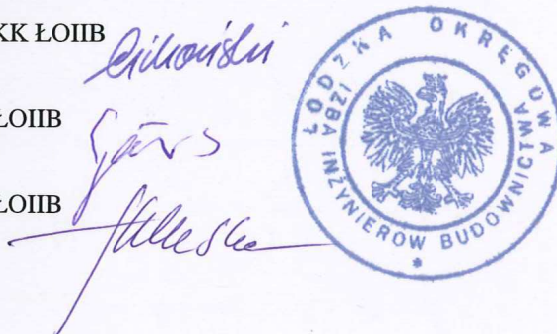 KK ŁOIIB
ŁOIIB
ŁOIIB
ŁÓDZKA OKRĘGOWA
IZBA INŻYNIERÓW BUDOWNICTWA